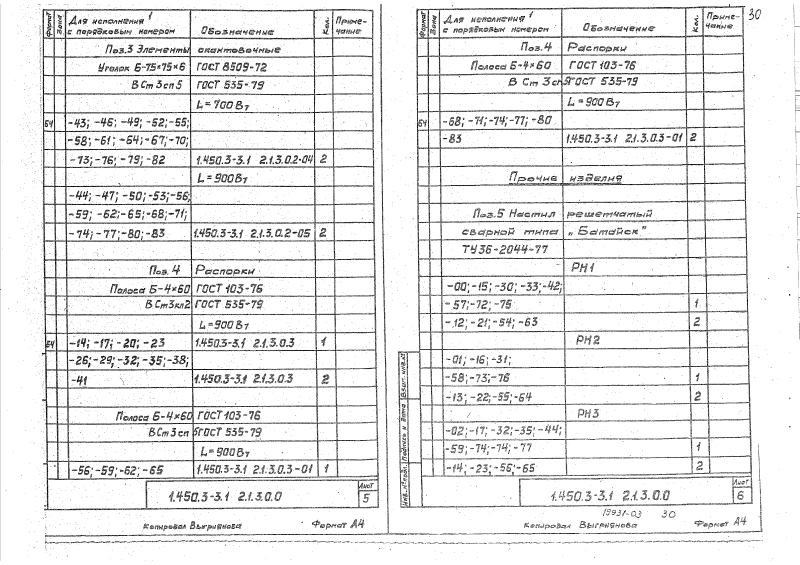 Формат Зона Для исполнения 1 с порядковым номером Обозначение Кол. Приме-чание
Поз.3 Элементы окантовочные
Уголок Б-75×75×6 ГОСТ 8509-72
В Ст3сп5 ГОСТ 535-79
L=700 Вт
БЧ -43; -46; -49; -52; -55;
-58; -61; -64; -67; -70;
-73; -76; -79; -82 1.450.3-3.1 2.1.3.0.2-04 2
L=900 Вт
-44; -47; -50; -53; -56;
-59; -62; -65; -68; -71;
-74; -77; -80; -83 1.450.3-3.1 2.1.3.0.2-05 2
Поз. 4 Распорки
Полоса Б-4×60 ГОСТ 103-76
В Ст3кп2 ГОСТ 535-79
L=900 Вт
БЧ -14; -17; -20; -23 1.450.3-3.1 2.1.3.0.3 1
-26; -29; -32; -35; -38;
-41 1.450.3-3.1 2.1.3.0.3 2
Полоса Б-4×60 ГОСТ 103-76
В Ст3сп5 ГОСТ 535-79
L=900 Вт
-56; -59; -62; -65 1.450.3-3.1 2.1.3.0.3-01 1
1.450.3-3.1 2.1.3.0.0 Лист 5
Копировал Выгриянова Формат А4
30
Формат Зона Для исполнения 1 с порядковым номером Обозначение Кол. Приме-чание
Поз.4 Распорки
Полоса Б-4×60 ГОСТ 103-76
В Ст3сп5 ГОСТ 535-79
L=900 Вт
БЧ -68; -71; -74; -77; -80
-83 1.450.3-3.1 2.1.3.0.3-01 2
Прочие изделия
Поз.5 Настил решетчатый
сварной типа „Батайск"
ТУ36-2044-77
РН1
-00; -15; -30; -33; -42;
-57; -72; -75 1
-12; -21; -54; -63 2
РН2
-01; -16; -31;
-58; -73; -76 1
-13; -22; -55; -64 2
РН3
-02; -17; -32; -35; -44;
-59; -74; -74; -77 1
-14; -23; -56; -65 2
Инв.№подл. Подпись и дата Взам. инв.№
1.450.3-3.1 2.1.3.0.0 Лист 6
19931-03 30
Копировал Выгриянова Формат А4